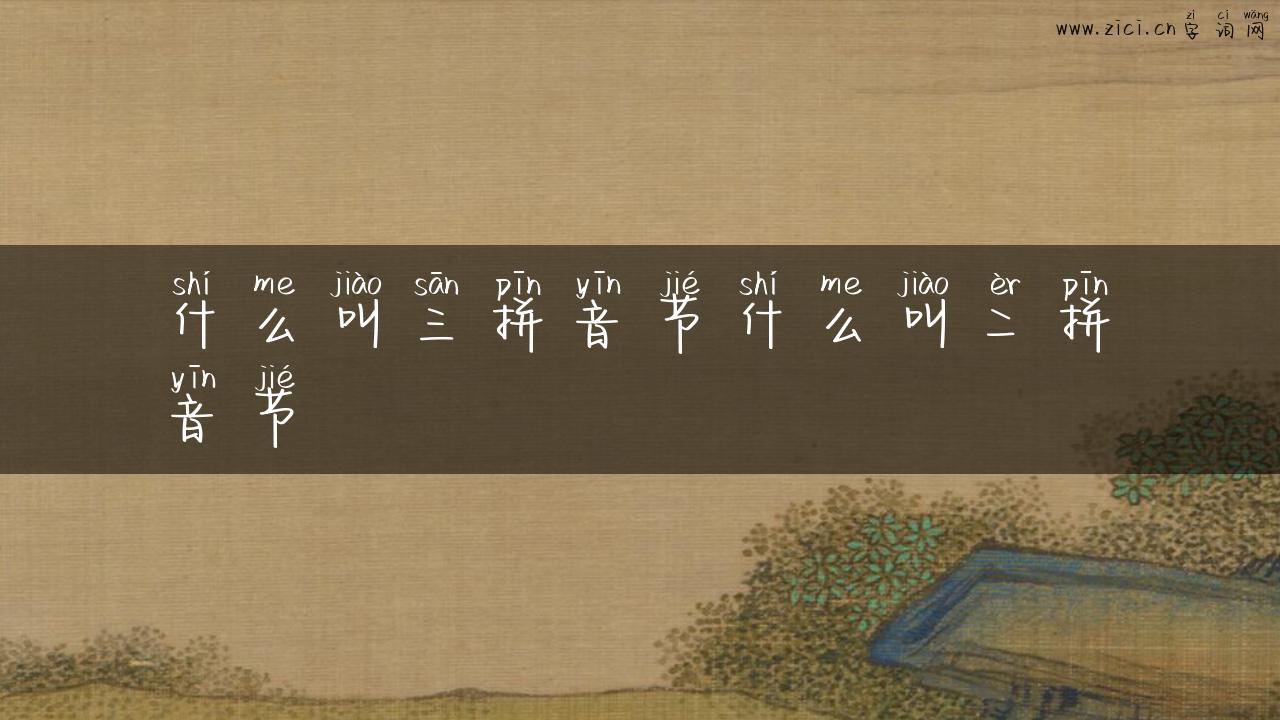 zì cí wǎng
www.zici.cn 字 词 网
shí me jiào sān pīn yīn jié shí me jiào èr pīn
什 么 叫 三 拼 音 节 什 么 叫 二 拼
yīn jié
音 节